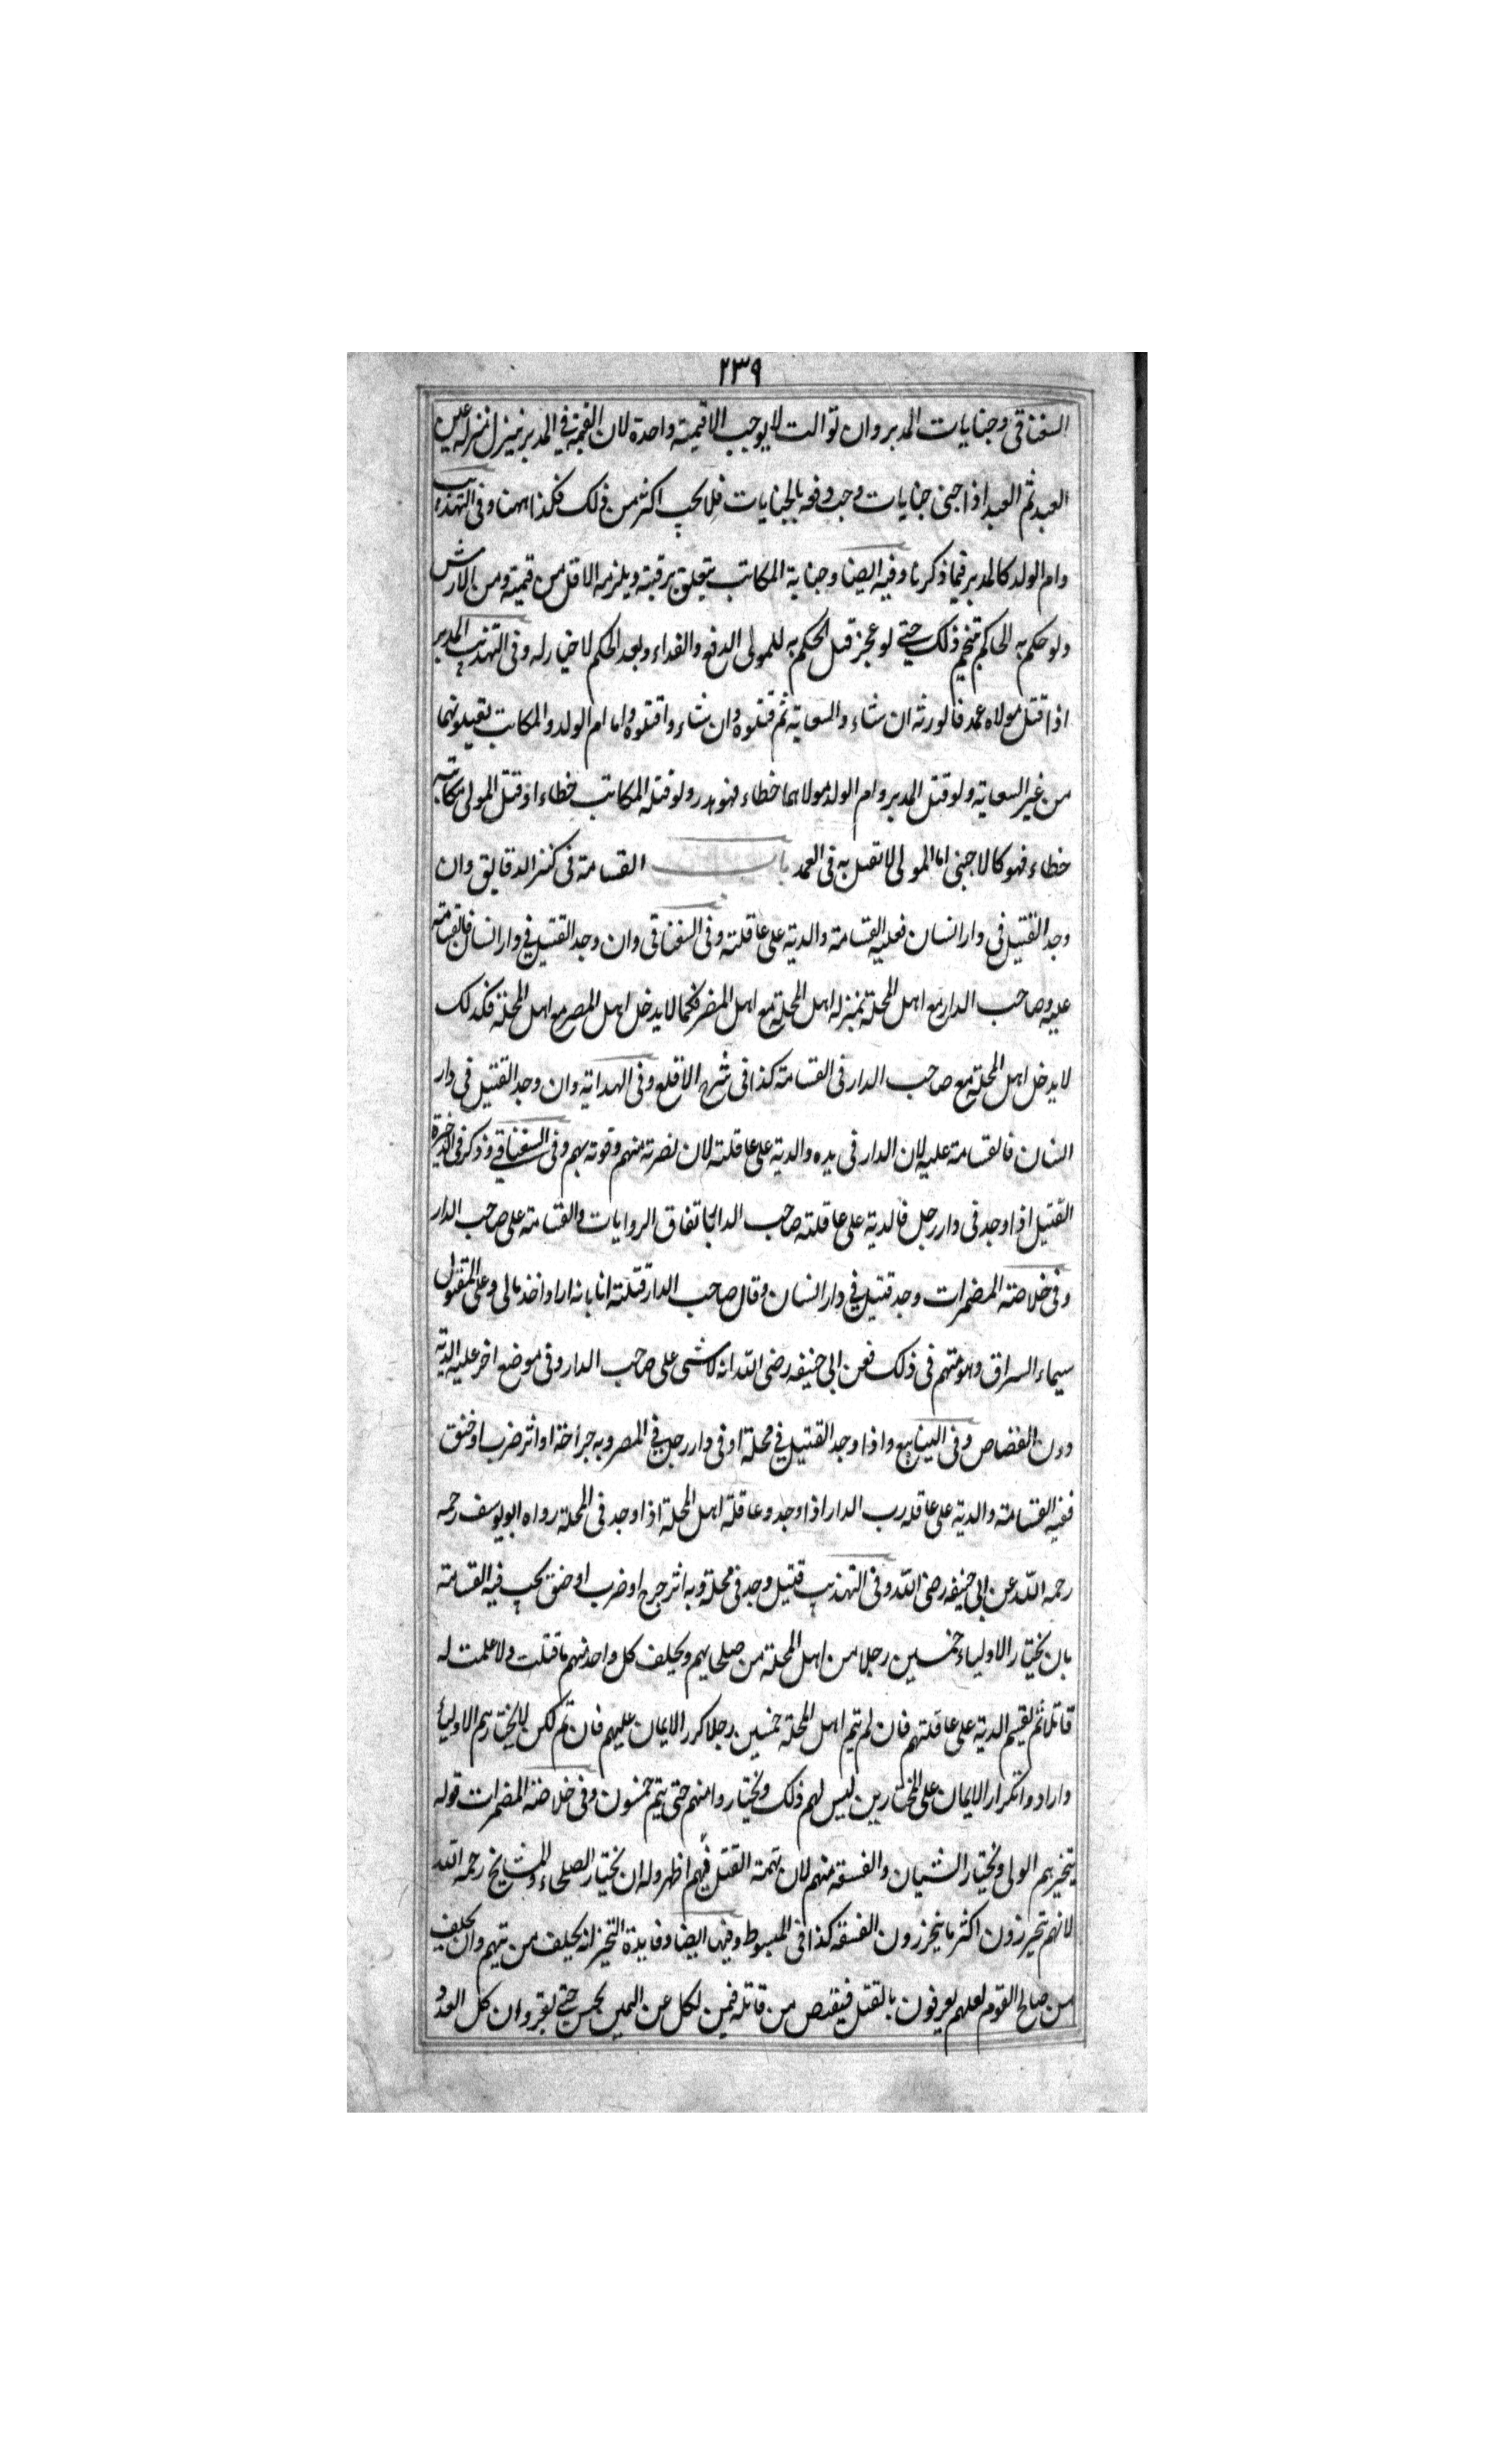 ٢٣٩
السغناقی وجنایات المدبر وان توالت لا یوجب الا قیمته واحدة لان القیمة فی المدبر ینزل منزله عین
العبد ثم العبد اذا جنی جنایات وجب دفعه بالجنایات فلا یجب اکثر من ذلک فکذا ههنا وفی التهذیب
وام الولد کالمدبر فیما ذکرنا وفیه ایضا وجنایة المکاتب یتعلق برقبته ویلزمه الاقل من قیمته ومن الارش
ولو حکم به الحاکم ذلک حتی لو عجز قبل الحکم به للمولی الدفع والفداء وبعد الحکم لا خیار له وفی التهذیب المدبر
اذا قتل مولاه عمدا فالورثه ان شاءوا السعایة ثم قتلوه وان شاءوا قتلوه واما ام الولد والمکاتب یقتلونهما
من غیر السعایة ولو قتل المدبر وام الولد مولاهما خطاء فهو هدر ولو قتله المکاتب خطاء او قتل المولی مکاتبه
خطاء فهو کالاجنبی اما المولی لا یقتل به فی العمد باب القسامة فی کنز الدقایق وان
وجد القتیل فی دار انسان فعلیه القسامة والدیة علی عاقلته وفی السغناقی وان وجد القتیل فی دار انسان فالقسامة
علیه وصاحب الدار مع اهل المحلة بمنزله اهل المحلة مع اهل المصر فکما لا یدخل اهل المصر مع اهل المحلة فکذلک
لا یدخل اهل المحلة مع صاحب الدار فی القسامة کذا فی شرح الاقطع وفی الهدایة وان وجد القتیل فی دار
انسان فالقسامة علیه لان الدار فی یده والدیة علی عاقلته لان نصرته منهم وقوته بهم وفی السغناقی وذکر فی الذخیرة
القتیل اذا وجد فی دار رجل فالدیة علی عاقلته صاحب الدار باتفاق الروایات والقسامة علی صاحب الدار
وفی خلاصة المضمرات وجد قتیل فی دار انسان وقال صاحب الدار قتلته انا بانه اراد اخذ مالی وعلی المقتول
سیماء السراق وهو متهم فی ذلک فعن ابی حنیفه رضی الله انه لا شی علی صاحب الدار وفی موضع اخر علیه الدیة
دون القصاص وفی الینابیع واذا وجد القتیل فی محلة او فی دار رجل فی المصر وبه جراحة او اثر ضرب او خنق
ففیه القسامة والدیة علی عاقله رب الدار اذا وجد وعاقلة اهل المحلة اذا وجد فی المحلة رواه ابو یوسف رحمه
رحمه الله عن ابی حنیفه رضی الله وفی التهذیب قتیل وجد فی محلة وبه اثر جرح او ضرب او خنق یجب فیه القسامة
بان یختار الاولیاء خمسین رجلا من اهل المحلة من صلحایهم ویحلف کل واحد منهم ما قتلت ولا علمت له
قاتلا ثم یقسم الدیة علی عاقلتهم فان لم یتم اهل المحلة خمسین رجلا کرر الایمان علیهم فان تم لکن لا یختارهم الاولیاء
وارادوا تکرار الایمان علی المختارین لیس لهم ذلک ویختاروا منهم حتی یتم خمسون وفی خلاصة المضمرات قوله
یتخیرهم الولی ویختار الشبان والفسقة منهم لان تهمة القتل فیهم اظهر وله ان یختار الصلحاء والمشایخ رحمه الله
لانهم یتحرزون اکثر ما یتحرزون الفسقة کذا فی المبسوط وفیها ایضا وفایدة التخیر انه یحلف من یتهم وان یحلف
من صالح القوم لعلهم یعرفون بالقتل فیقتص من قاتله فمن نکل عن الیمین یحبس حتی یقر وان کل العدو